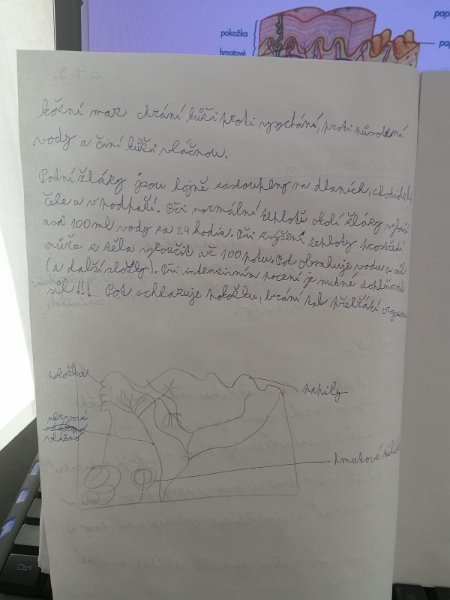 pokožka
hmatové
pap
pap
kožní maz chrání kůži proti vysychání, proti působení
vody a činí kůži vláčnou.
Potní žlázky jsou hojně zastoupeny na dlaních, chodidlech,
čele a v podpaží. Při normální teplotě okolí žlázky vyloučí
asi 100ml vody za 24 hodin. Při zvýšení teploty prostředí
může z těla vyloučit až potu. Pot obsahuje vodu a sůl
(a další složky). Při intenzivním pocení je nutné doplňovat
sůl!!! Pot ochlazuje pokožku, brání tak přehřátí organismu
pokožka
papily
nervové
vlákno
hmatové
Ctrl